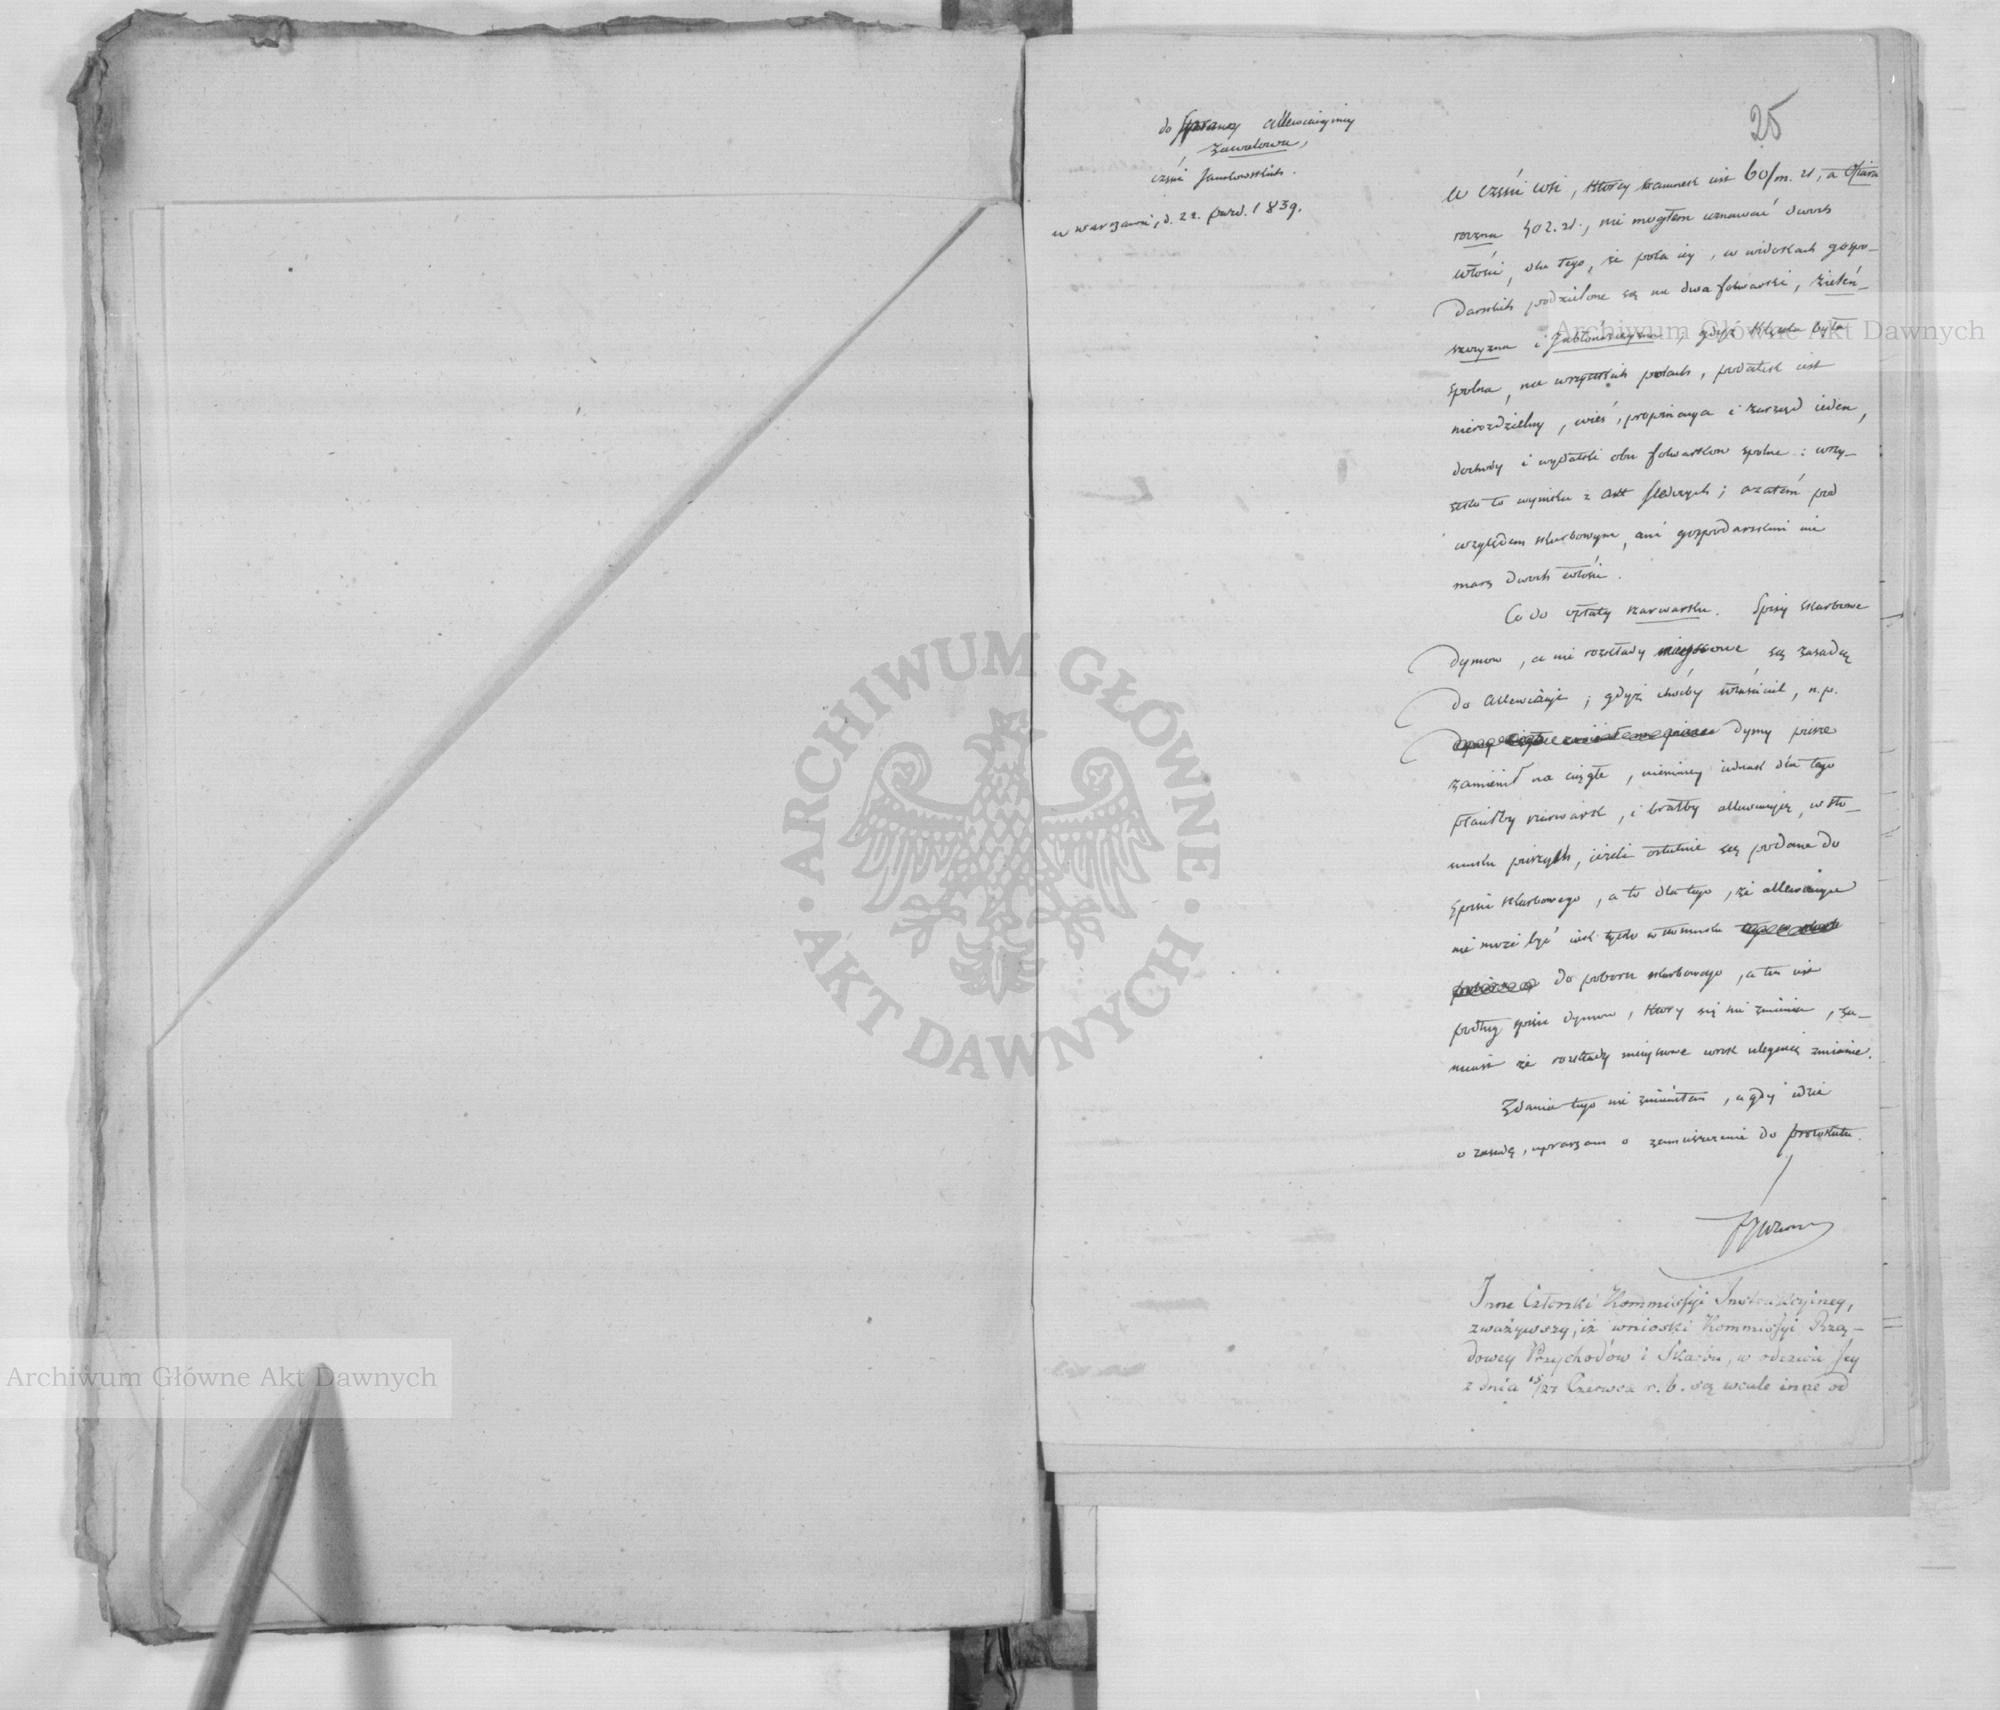 25
do Sprawy allewiacyiney
Zawałowa,
części Jankowskich.
w Warszawie, d. 22. paźd. 1839.
W części wsi, którey szacunek iest 60/m. zł, a Ofiara
roczna 402. zł., nie mogłem uznawać dwóch
włości, dla tego, że pola iey, w widokach gospo-
darskich podzielone są na dwa folwarki, Zieleń-
szczyzna i Jabłońszczyzna, gdyż klęska była
spólna, na wszystkich polach, podatek iest
nierozdzielny, wieś, propinacya i zarząd ieden,
dochody i wydatki obu folwarków spólne: wszy-
stko to wynika z Akt śledczych; a zatém pod
względem skarbowym, ani gospodarskim nie
masz dwóch włości.
Co do opłaty szarwarku. Spisy skarbowe
dymów, a nie rozkłady miejscowe są zasadą
do Allewiacyi; gdyż choćby właściciel, n.p.
dymy piesze
zamienił na ciągłe, niemniey iednak dla tego
płaciłby szarwark, i brałby allewiacyją, w sto-
sunku pieszych, ieżeli ostatnie są podane do
spisu skarbowego, a to dla tego, że allewiacya
nie może być iak tylko w stosunku
do poboru skarbowego, a ten iest
podług spisu dymów, który się nie zmienia, za-
miast że rozkłady mieyscowe co rok ulegaią zmianie.
Zdania tego nie zmieniłem, a gdy idzie
o zasadę, upraszam o zamieszczenie do protokułu.
Inne Członki Kommissyi Instrukcyiney,
zważywszy, iż wnioski Kommissyi Rzą-
dowey Przychodów i Skarbu, w odezwie Jey
z dnia 15/27 Czerwca r. b. są wcale inne od
Archiwum Główne Akt Dawnych
Archiwum Główne Akt Dawnych
· ARCHIWUM GŁÓWNE · AKT DAWNYCH